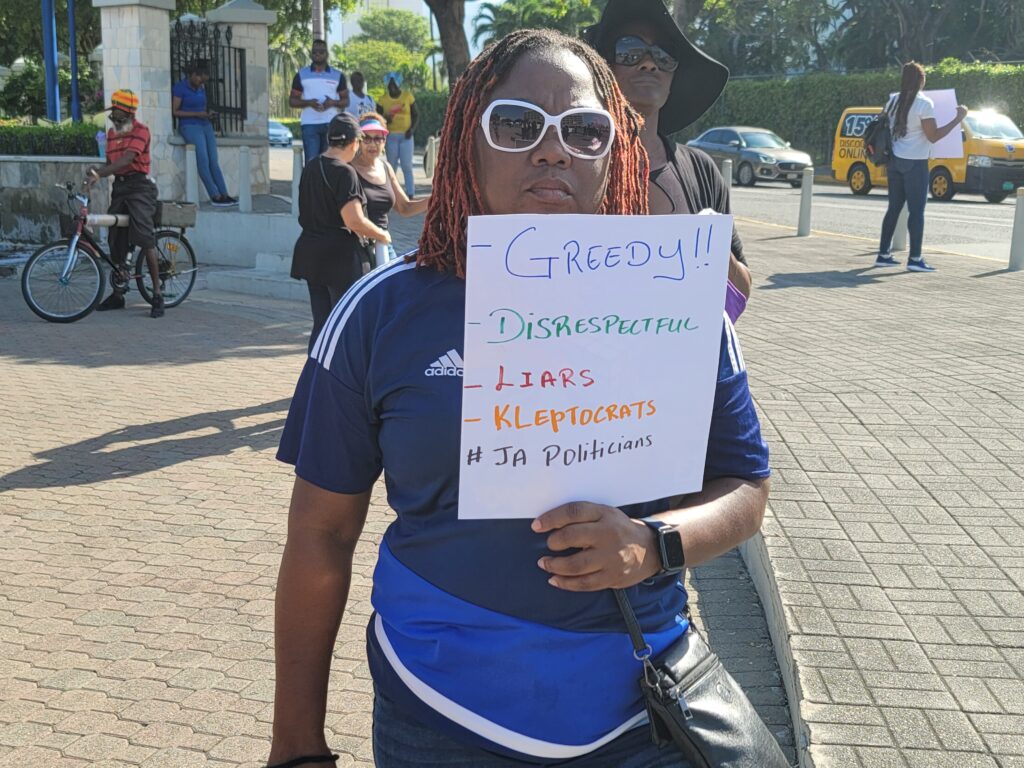 - GREEDY!!
- DISRESPECTFUL
- LIARS
- KLEPTOCRATS
# JA POLITICIANS
adidas
DISCO
ONLIN